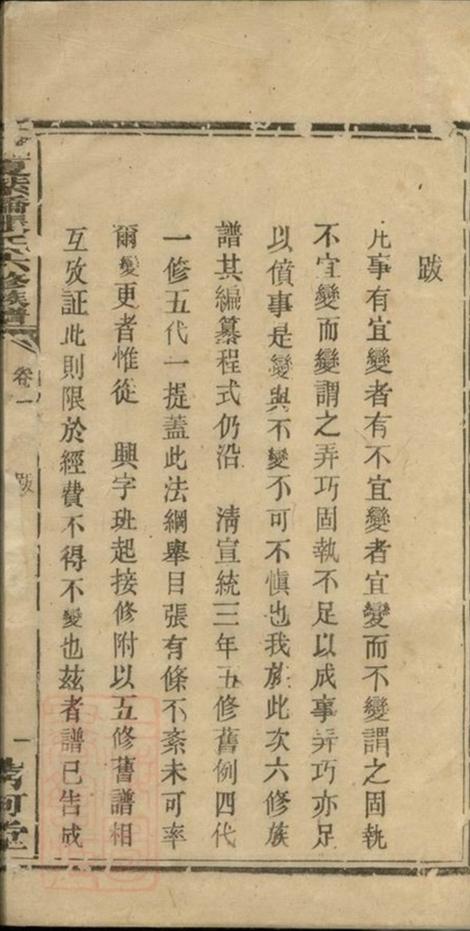 跋
凡事有宜變者有不宜變者宜變而不變謂之固執
不宜變而變謂之弄巧固執不足以成事弄巧亦足
以僨事是變與不變不可不慎也我族此次六修族
譜其編纂程式仍沿　清宣統三年五修舊例四代
一修五代一提蓋此法綱舉目張有條不紊未可率
爾變更者惟從　興字班起接修附以五修舊譜相
互攷証此則限於經費不得不變也茲者譜已告成
六修族譜
卷一
跋
一